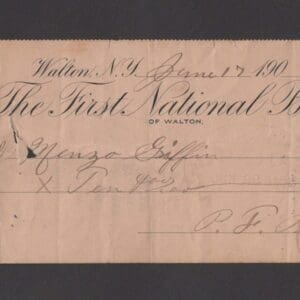 Walton, N.Y. June 17 190
The First National B
OF WALTON.
Menzo Griffin
X Ten
P. F.